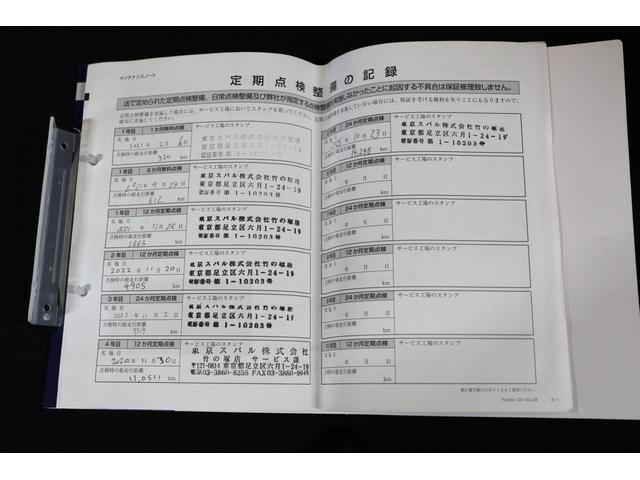 メンテナンスノート
定期点検整備の記録
法で定められた定期点検整備、日常点検整備及び弊社が指定する点検整備を実施しなかったことに起因する不具合は保証修理致しません。
1年目 1か月無料点検
サービス工場のスタンプ
実施日
点検時の総走行距離
km
東京スバル株式会社竹の塚店
東京都足立区六月1-24-19
認証番号 第1-10203号
1年目 6か月無料点検
サービス工場のスタンプ
点検時の総走行距離
612 km
東京スバル株式会社竹の塚店
東京都足立区六月1-24-19
認証番号 第1-10203号
1年目 12か月定期点検
サービス工場のスタンプ
実施日
点検時の総走行距離
km
東京スバル株式会社竹の塚店
東京都足立区六月1-24-19
認証番号 第1-10203号
2年目 12か月定期点検
サービス工場のスタンプ
実施日
2022年11月20日
点検時の総走行距離
4905 km
東京スバル株式会社竹の塚店
東京都足立区六月1-24-19
認証番号 第1-10203号
3年目 24か月定期点検
サービス工場のスタンプ
実施日
2023年11月2日
点検時の総走行距離
km
東京スバル株式会社竹の塚店
東京都足立区六月1-24-19
認証番号 第1-10203号
4年目 12か月定期点検
サービス工場のスタンプ
実施日
年11月30日
点検時の総走行距離
km
東京スバル株式会社
竹の塚店 サービス課
〒121-0814 東京都足立区六月1-24-19
電話03-3860-8255 FAX03-3860-9945
24か月定期点検
サービス工場のスタンプ
年10月23日
点検時の総走行距離
14,248 km
東京スバル株式会社竹の塚店
東京都足立区六月1-24-19
認証番号 第1-10203号
12か月定期点検
サービス工場のスタンプ
年 月 日
点検時の総走行距離
km
24か月定期点検
サービス工場のスタンプ
年 月 日
点検時の総走行距離
km
12か月定期点検
サービス工場のスタンプ
年 月 日
点検時の総走行距離
km
24か月定期点検
サービス工場のスタンプ
年 月 日
点検時の総走行距離
km
12か月定期点検
サービス工場のスタンプ
年 月 日
点検時の総走行距離
km